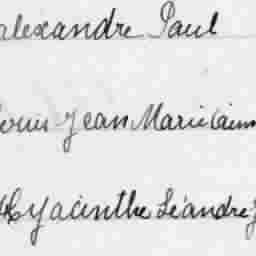 alexandre Paul
Louis Jean Marie Aimé
Hyacinthe Léandre